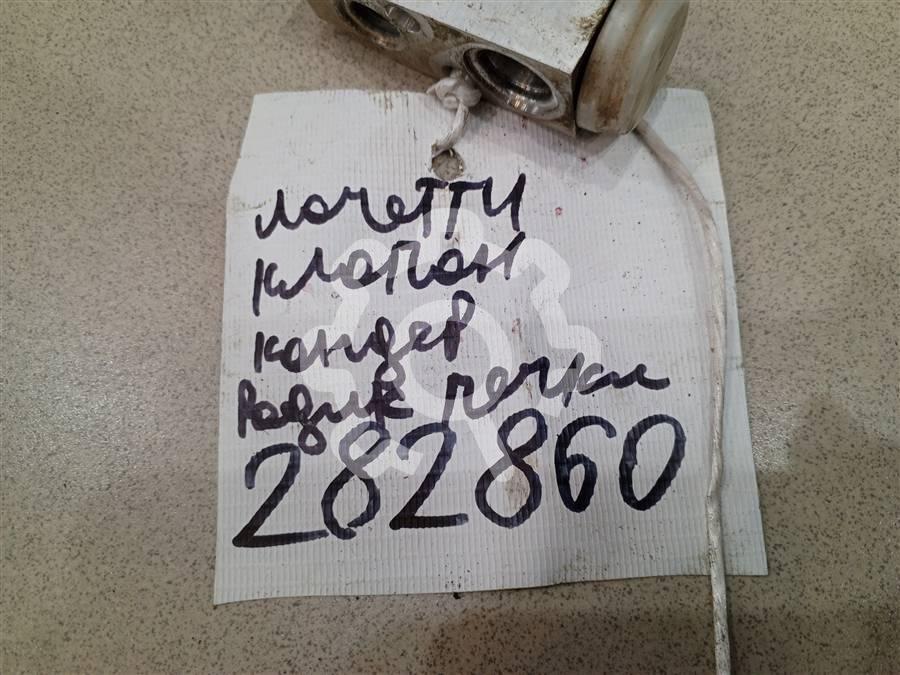 лачетти
клапан
кондер
Радик печки
282860